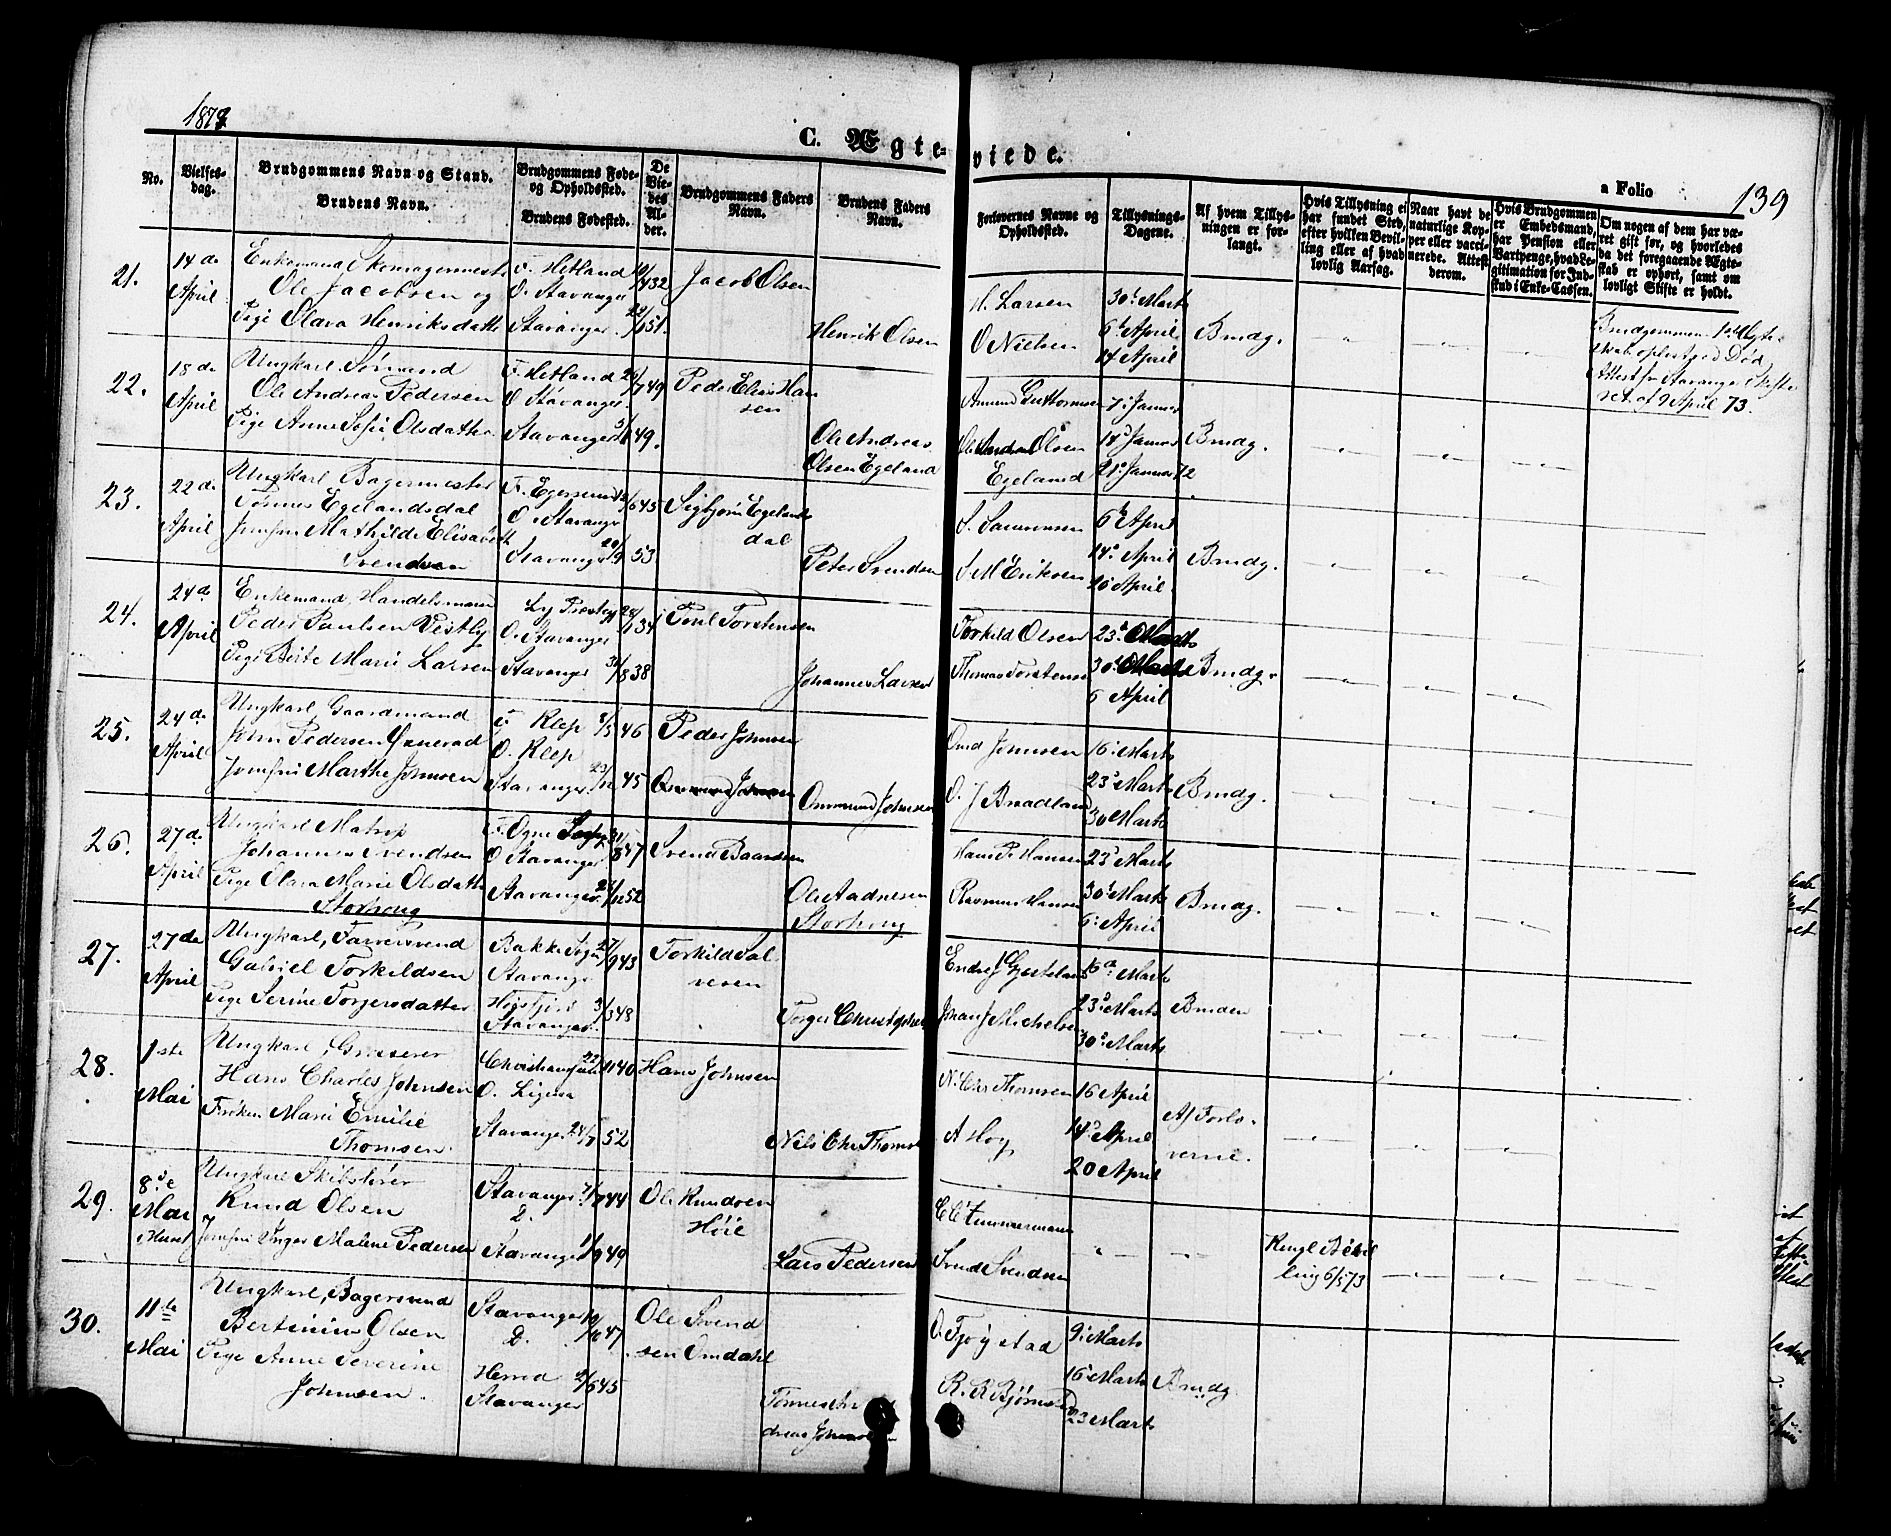 1873
C. Ægteviede.
a Folio
139
No.
Vielses-
dag.
Brudgommens Navn og Stand.
Brudens Navn.
Brudgommens Føde-
og Opholdssted.
Brudens Fødested.
De
Vie-
des
Al-
der.
Brudgommens Faders
Navn.
Brudens Faders
Navn.
Forlovernes Navne og
Opholdssted.
Tillysnings-
Dagene.
Af hvem Tillys-
ningen er for-
langt.
Hvis Tillysning ei
har fundet Sted,
efter hvilken Bevil-
ling eller af hvad
lovlig Aarsag.
Naar havt de
naturlige Kop-
per eller vacci-
nerede. Attest
derom.
Hvis Brudgommen
er Embedsmand,
har Pension eller
Vartpenge, hvad Le-
gitimation for Ind-
skud i Enke-Cassen.
Om nogen af dem har væ-
ret gift før, og hvorledes
da det foregaaende Ægte-
skab er ophørt, samt om
lovligt Skifte er holdt.
21.
14de
April
Enkemand, Skomagermester
Ole Jacobsen og
Pige Olava Henriksdatter
F. Hetland
O. Stavanger
Stavanger
32
51.
Jacob Olsen
Henrik Olsen
H. Larsen
O Nielsen
30t Marts
6t April
14 April
Brudg.
Brudgommens 1ste Ægte-
skab opløst ved Død
Attest fr Stavanger Skifte-
ret af 9 April 73.
22.
18de
April
Ungkarl Sømand
Ole Andreas Pedersen
Pige Anne Sofie Olsdatter
F. Hetland
O Stavanger.
Stavanger
49
49.
Peder Elias Han
sen
Ole Andreas
Olsen Egeland
Amund Guttormsen
Ole Andreas Olsen
Egeland
7 Januar
14 Januar
21 Januar 72
Brudg.
23.
22de
April
Ungkarl Bagermester
Tønnes Egelandsdal
Jomfru Mathilde Elisabeth
Svendsen
F. Egersund
O. Stavanger
Stavanger
45
53
Sigbjørn Egelands
dal
Peter Svendsen
S. M Eriksen
6t April
14 April
20 April
Brudg.
24.
24de
April
Enkemand, Handelsmand
Peder Paulsen Vestly
Pige Berte Marie Larsen
Ly Præstegj
O. Stavanger
Stavanger
28/1 34
31/8 38
Johannes Larsen
Torkild Olsen
Thomas Torstensen
23 Marts
30 Marts
6 April
Brudg.
25.
24de
April
Ungkarl Gaardmand
John Pedersen
Jomfru Marthe Johnsen
F. Klep
O. Klep
Stavanger
46
45
Peder Johnsen
Ommund Johnsen
Ommund Johnsen
O. J Braadland
16 Marts
23 Marts
30 Marts
Brudg.
26.
27de
April
Ungkarl Matros
Johannes Svendsen
Pige Olava Marie Olsdatter
Storhoug
F. Ogne Sogn
O Stavanger
Stavanger
31/8 47
52
Svend Baardsen
Ole Aadnesen
Storhoug
Hans P. Hansen
Rasmus Hansen
23 Marts
30t Marts
6 April
Brudg.
27.
27de
April
Ungkarl, Farversvend
Gabriel Torkildsen
Pige Serine Torgersdatter
Bakke Sogn
Stavanger
Høgsfjord
Stavanger
43
3/3 48
Torkild Sal
vesen
Torger Christophers
Johan J Michelsen
16de Marts
23 Marts
30 Marts
Bruden
28.
1ste
Mai
Ungkarl, Grosserer
Hans Charles Johnsen
Frøken Marie Emilie
Thomsen.
O. Ligesaa
Stavanger
40
24/7 52
Hans Johnsen
Nils Chr Thomsen
N. Chr Thomsen
A Høy
16 April
14 April
20 April
Af Forlo-
verne.
29.
8de
Mai
i Huset
Ungkarl Skibsfører
Knud Olsen
Jomfru Inger Malene Pedersen
Stavanger
D.
Stavanger
44
1/9 49
Ole Knudsen
Høie
Lars Pedersen
C C Timmermann
Svend Svendsen
Kngl Bevil
ling 6/5 73
30.
11te
Mai
Ungkarl, Bagersvend
Bertinius Olsen
Pige Anne Severine
Johnsen.
Stavanger
D.
Stavanger
47
45
Ole Svend
sen Omdahl
Tønnes An
dreas Johnsen
O. Tjøgstad
9 Marts
16 Marts
23 Marts
Brudg.